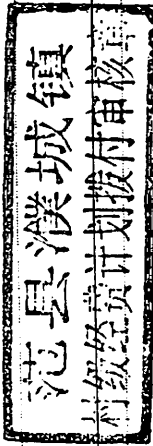 范县濮城镇
村级经费计划拨付审核章